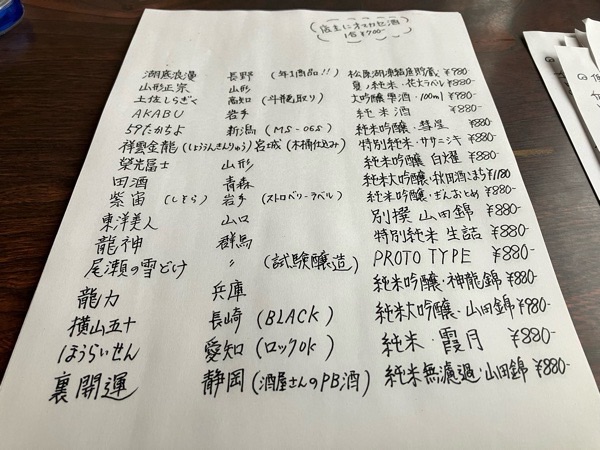 店主におまかせ酒
1合¥700-
湖底浪漫 長野 (年1商品!!) 松原湖凍結底貯蔵 ¥980-
山形正宗 山形 夏ノ純米・花火ラベル ¥880-
土佐しらぎく 高知 (斗瓶取り) 大吟醸雫酒・100ml ¥980-
AKABU 岩手 純米酒 ¥880-
59たかちよ 新潟 (MS-06S) 純米吟醸・彗星 ¥880-
祥雲金龍(しょううんきんりゅう) 宮城 (木桶仕込み) 特別純米・ササニシキ ¥880-
榮光冨士 山形 純米吟醸 白燿 ¥880-
田酒 青森 純米大吟醸・秋田酒こまち ¥1180
紫宙 (しそら) 岩手 (ストロベリーラベル) 純米吟醸・ぎんおとめ ¥880-
東洋美人 山口 別撰 山田錦 ¥880-
龍神 群馬 特別純米 生詰 ¥880-
尾瀬の雪どけ 〃 (試験醸造) PROTO TYPE ¥880-
龍力 兵庫 純米吟醸・神龍錦 ¥880-
横山五十 長崎 (BLACK) 純米大吟醸・山田錦 ¥980-
ほうらいせん 愛知 (ロックok) 純米・霞月 ¥880-
裏開運 静岡 (酒屋さんのPB酒) 純米無濾過・山田錦 ¥880-